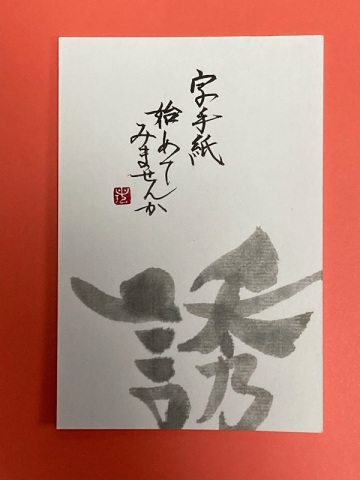 字手紙
始めて
みませんか
誘